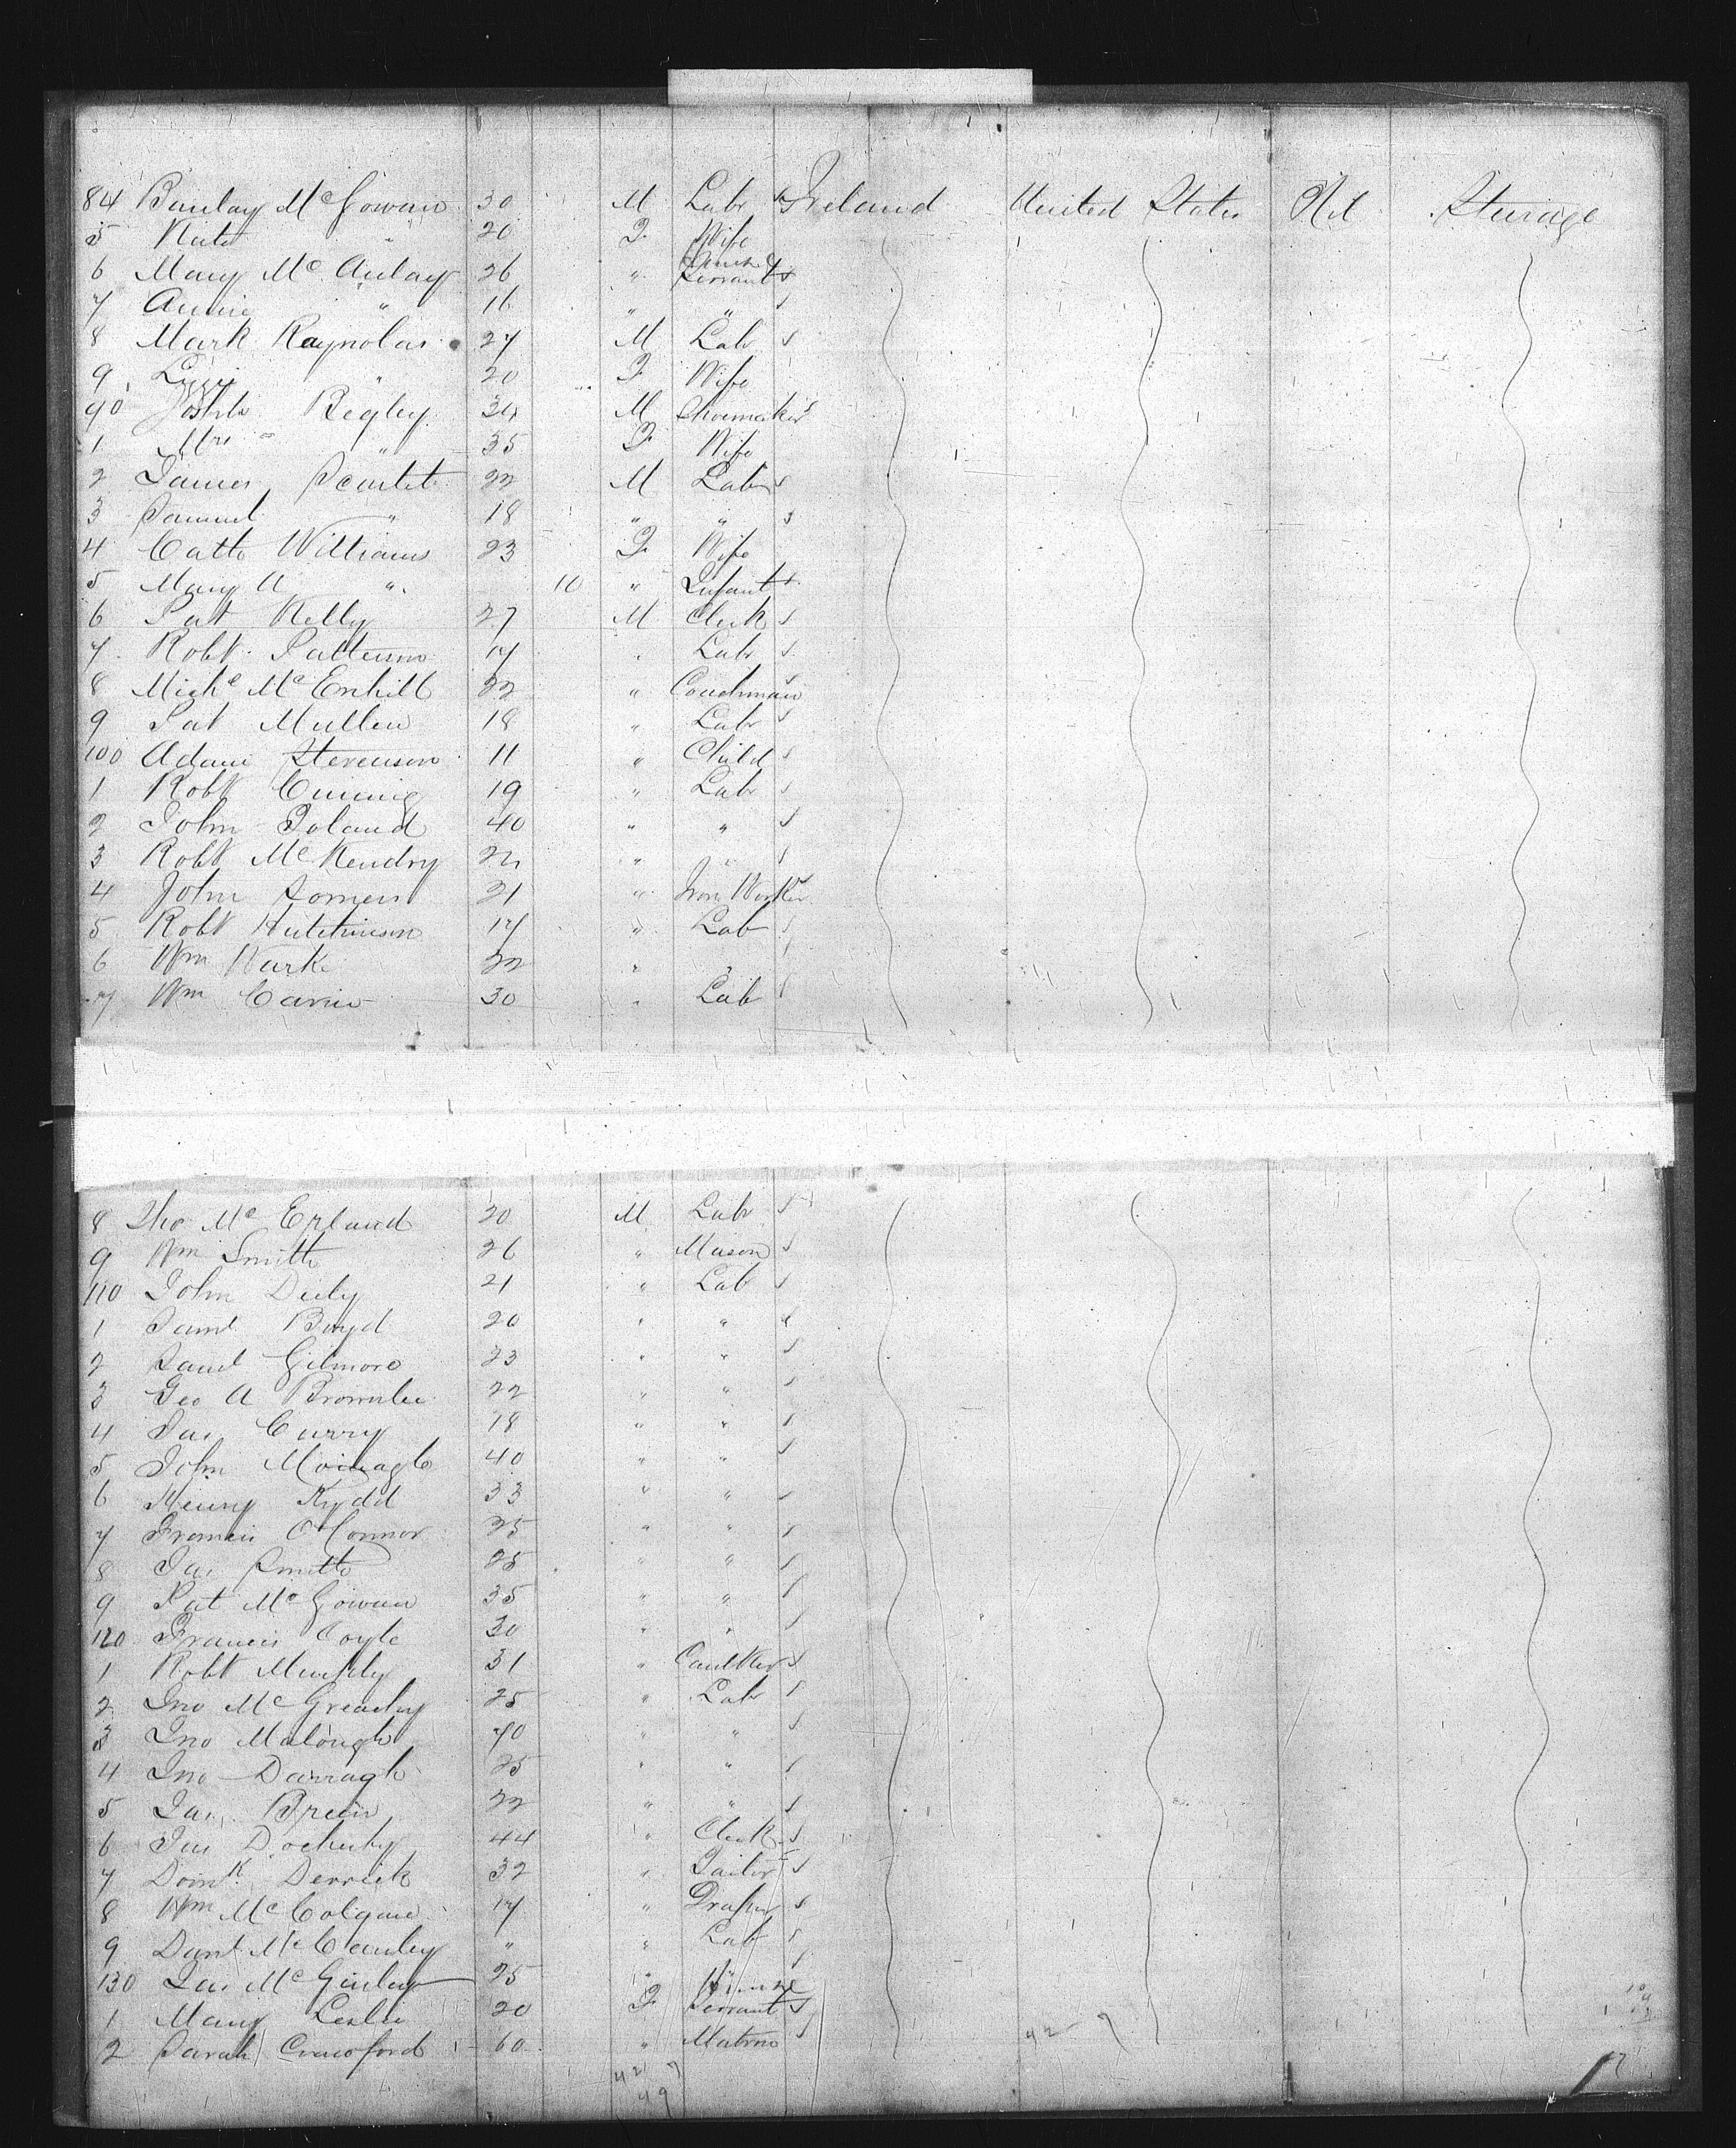 84 McGowan 30 M Labr Ireland United States Nil Steerage
5 Kate " 20 F Wife
6 Mary McAulay 26 " House Servant
7 Annie " 16 " "
8 Mark Raynolds 27 M Lab
9 Lizzie " 20 F Wife
90 Begley 34 M Shoemaker
1 Mrs " 35 F Wife
2 James Scarlet 22 M Lab
3 Samuel " 18 " "
4 Cath Williams 23 F Wife
5 Mary A " 10 " Infant
6 Pat Kelly 27 M Clerk
7 Robt Patterson 17 " Labr
8 Michl McEnhill 22 " Coachman
9 Pat Mullen 18 " Labr
100 Adam Stevenson 11 " Child
1 Robt Cuming 19 " Labr
2 John Boland 40 " "
3 Robt McKendry " "
4 John Somers 21 " Iron Worker
5 Robt Hutchinson 17 " Lab
6 Wm Wark 22 " "
7 Wm 30 " Lab
8 Tho McErland 20 M Labr
9 Wm Smith 26 " Mason
110 John 21 " Lab
1 Saml Boyd 20 " "
2 Saml Gilmore 23 " "
3 Geo A Brownlee 22 " "
4 Jas Curry 18 " "
5 John Moinagh 40 " "
6 Henry Kydd 33 " "
7 Francis O'Connor 25 " "
8 Jas Smith 25 " "
9 Pat McGowan 35 " "
120 Francis Coyle 30 " "
1 Robt 31 " Caulker
2 Jno McGreachy 25 " Labr
3 Jno Malough 40 " "
4 Jno Darragh 25 " "
5 Jas 22 " "
6 Jas Docherty 44 " Clerk
7 Domk Derrick 32 " Tailor
8 Wm McColgan 17 " Draper
9 Danl McCauley " " Lab
130 Jas McGinley 25 " "
1 Mary Leslie 20 F House Servant
2 Sarah Crawford 60 " Matron
42 7
42 7
49